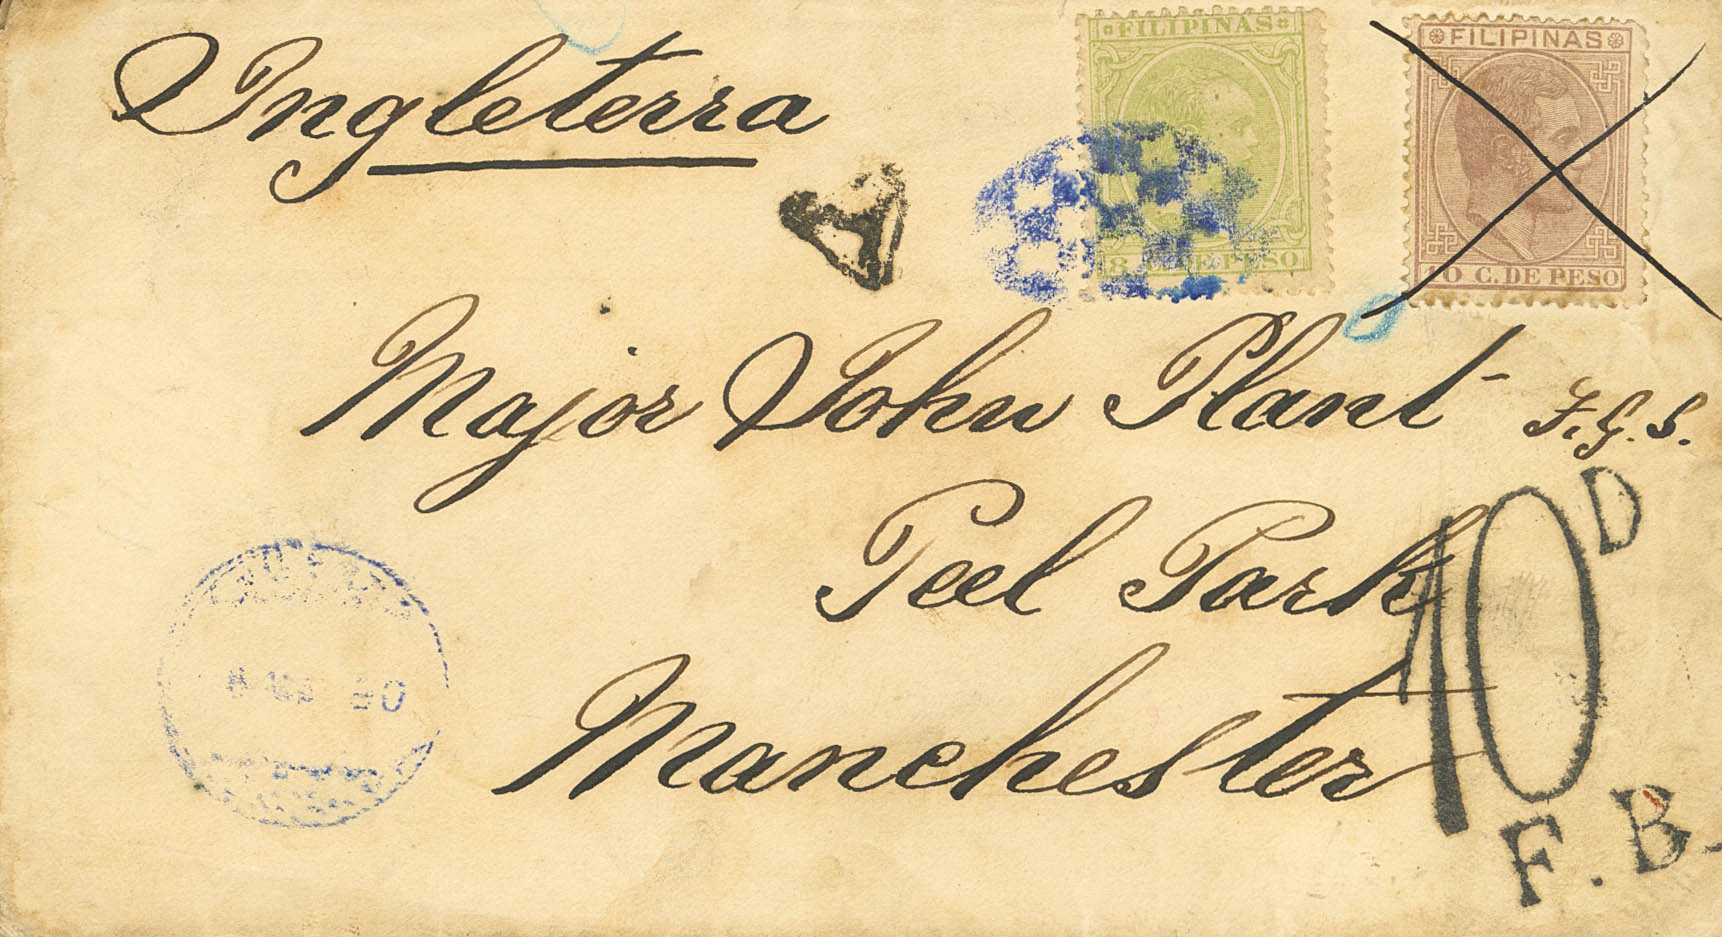 Ingleterra
FILIPINAS
8 C. DE PESO
FILIPINAS
10 C. DE PESO
Major John Plant F.G.S.
Peel Park
Manchester
10D
F.B.
90